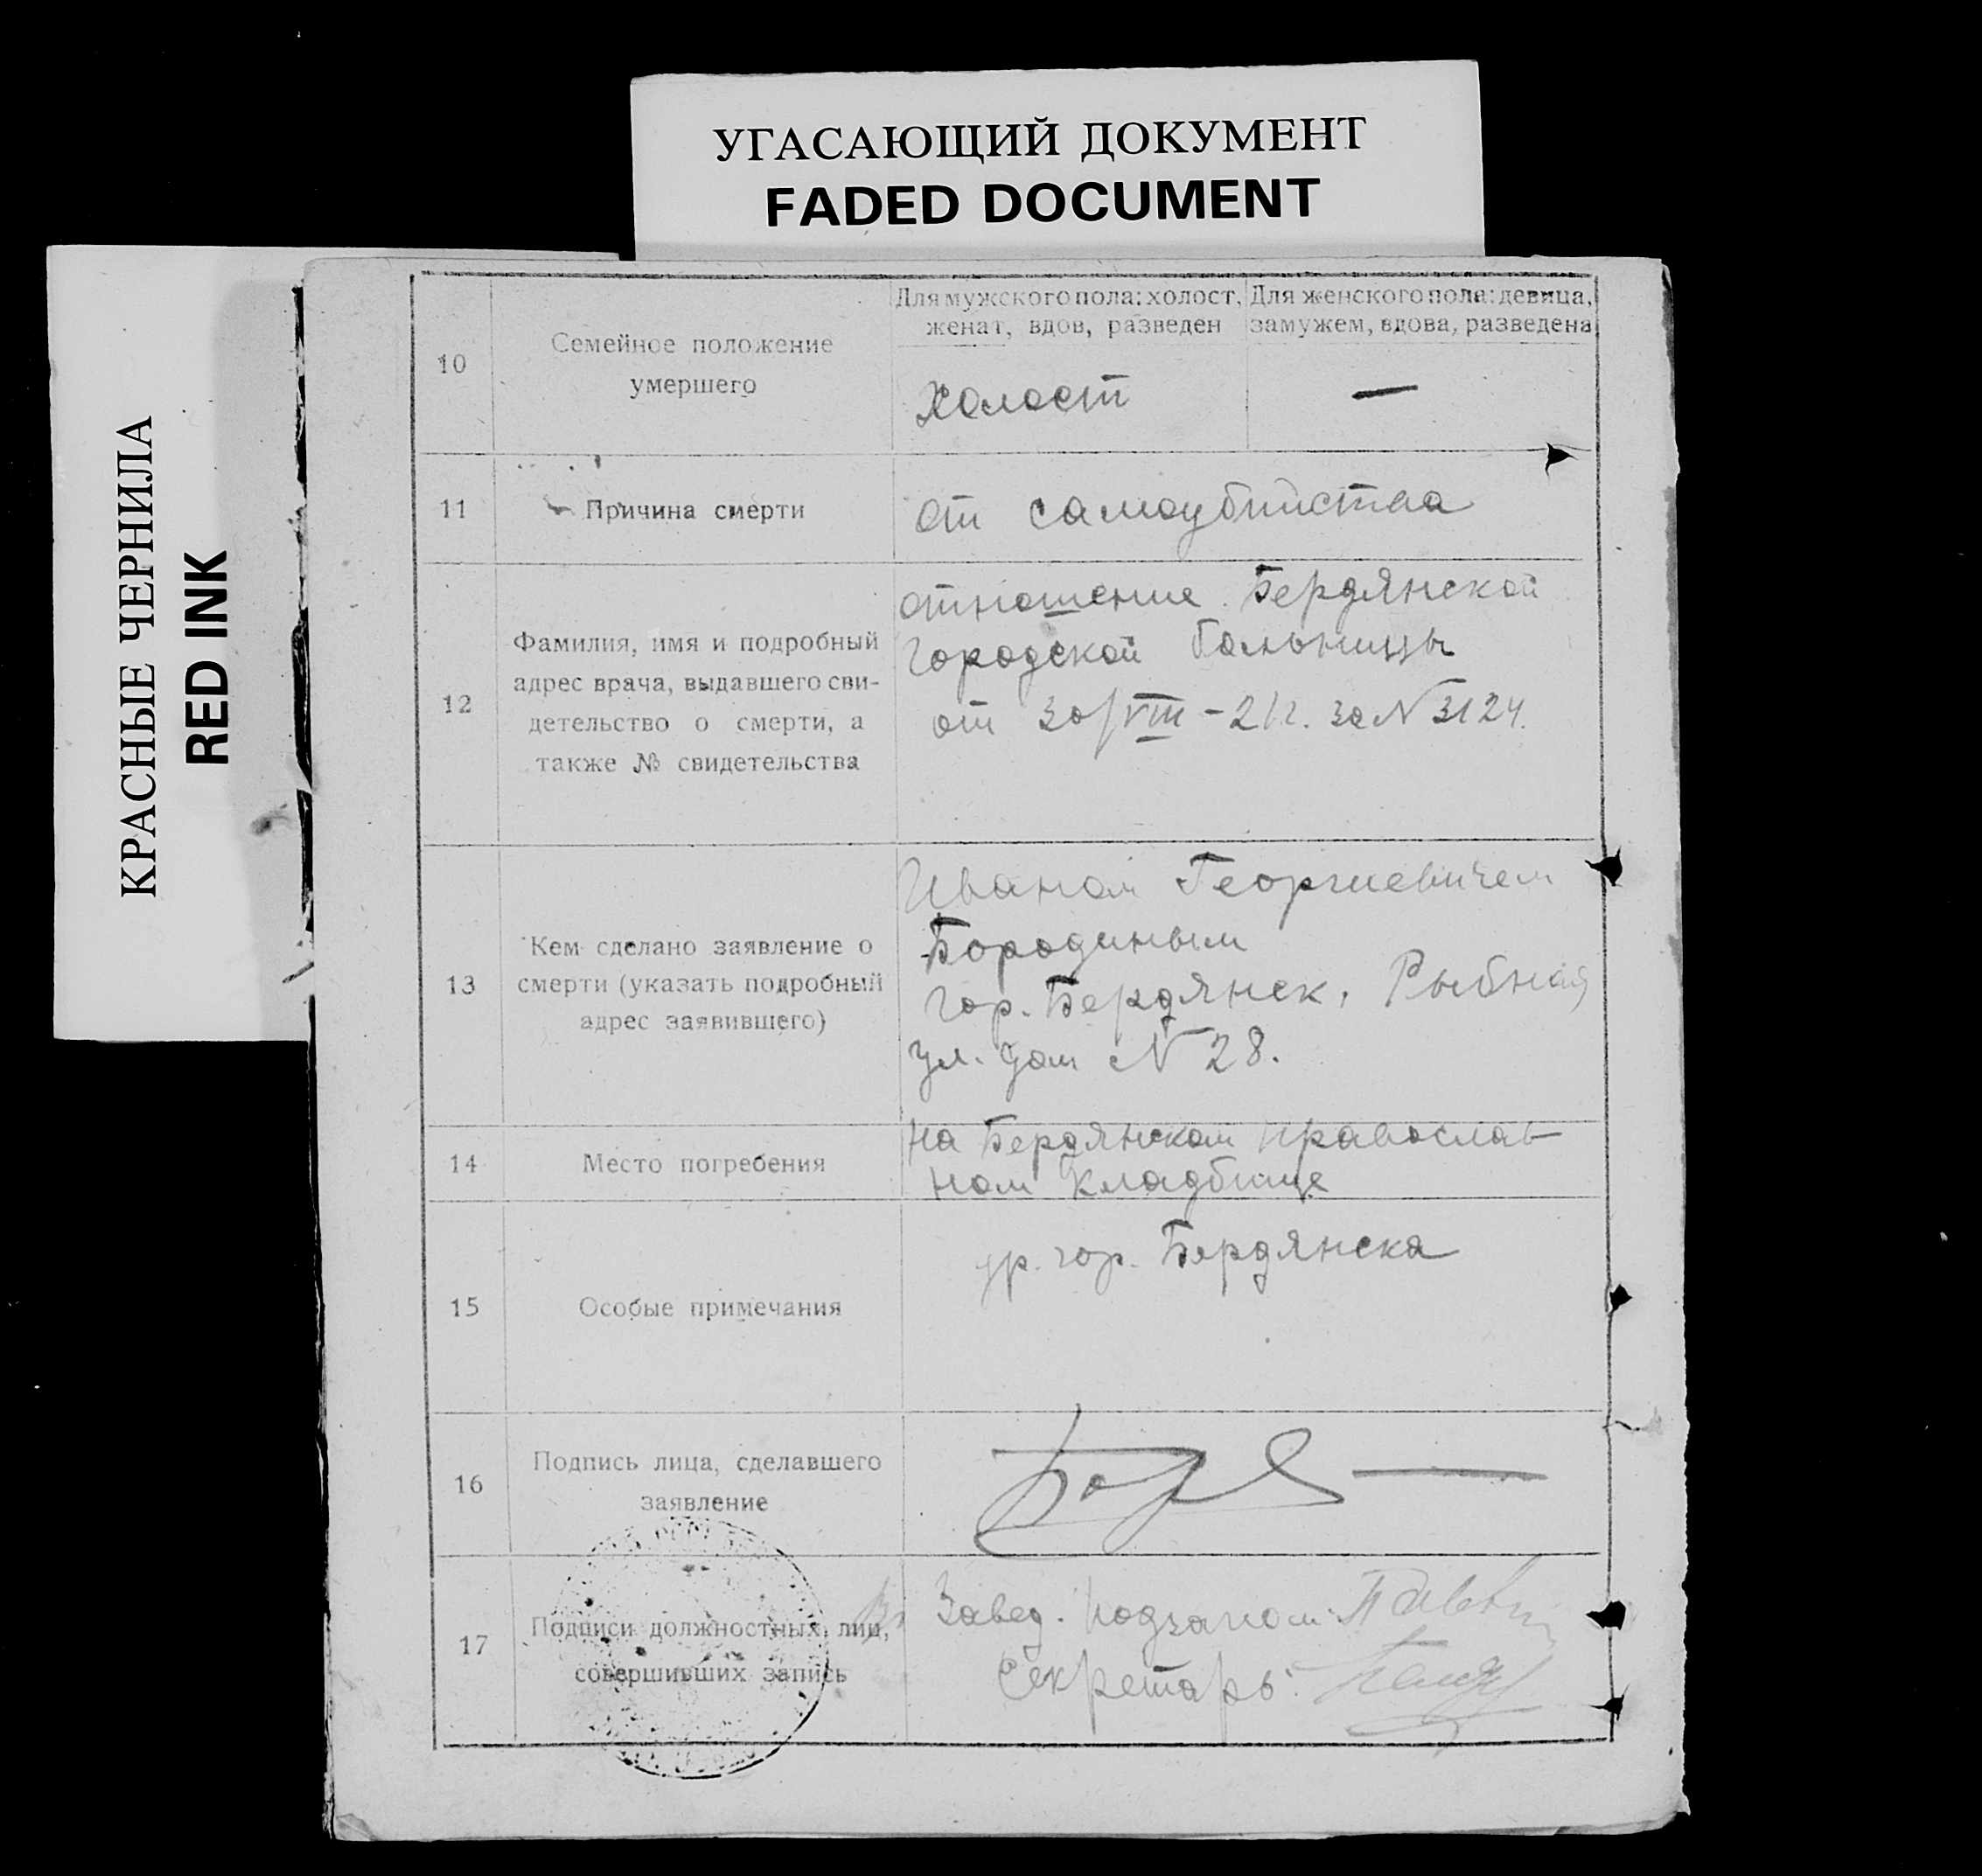 УГАСАЮЩИЙ ДОКУМЕНТ
FADED DOCUMENT
КРАСНЫЕ ЧЕРНИЛА
RED INK
10
Семейное положение
умершего
Для мужского пола: холост,
женат, вдов, разведен
Для женского пола: девица,
замужем, вдова, разведена
Холост
—
11
Причина смерти
от самоубийства
12
Фамилия, имя и подробный
адрес врача, выдавшего сви-
детельство о смерти, а
также № свидетельства
отношение Бердянской
городской больницы
от 30/VIII – 21г. за № 3124.
13
Кем сделано заявление о
смерти (указать подробный
адрес заявившего)
Иваном Георгиевичем
Бородиным
гор. Бердянск, Рыбная
ул. дом № 28.
14
Место погребения
на Бердянском православ-
ном кладбище
15
Особые примечания
ур. гор. Бердянска
16
Подпись лица, сделавшего
заявление
17
Подписи должностных лиц,
совершивших запись
Завед. подзагсом:
Секретарь: